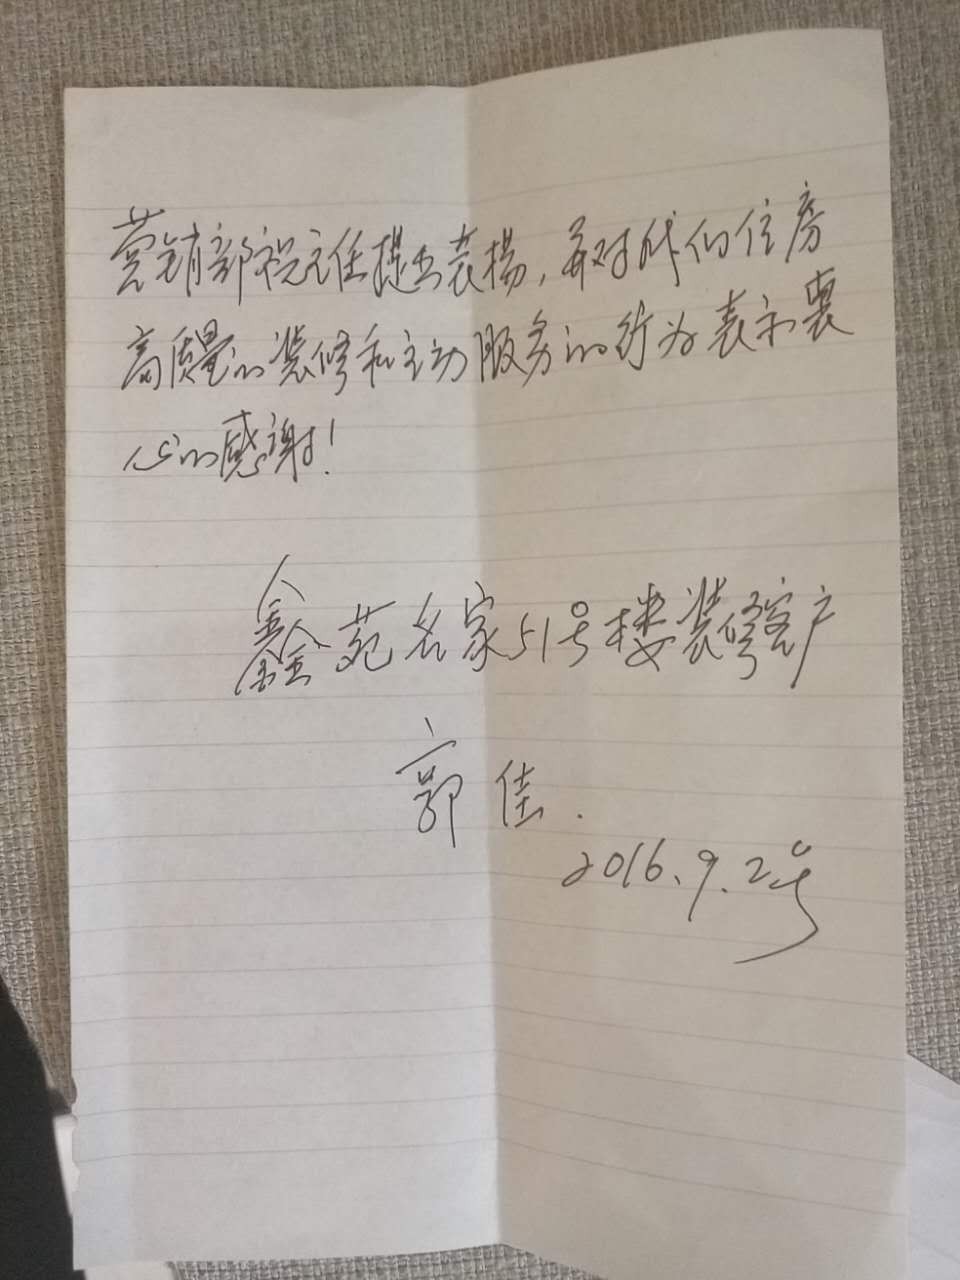 营销部祝主任提出表扬，并对我们住房
高质量的装修和主动服务的行为表示衷
心的感谢！
鑫苑名家51号楼装修客户
郭佳.
2016.9.2号